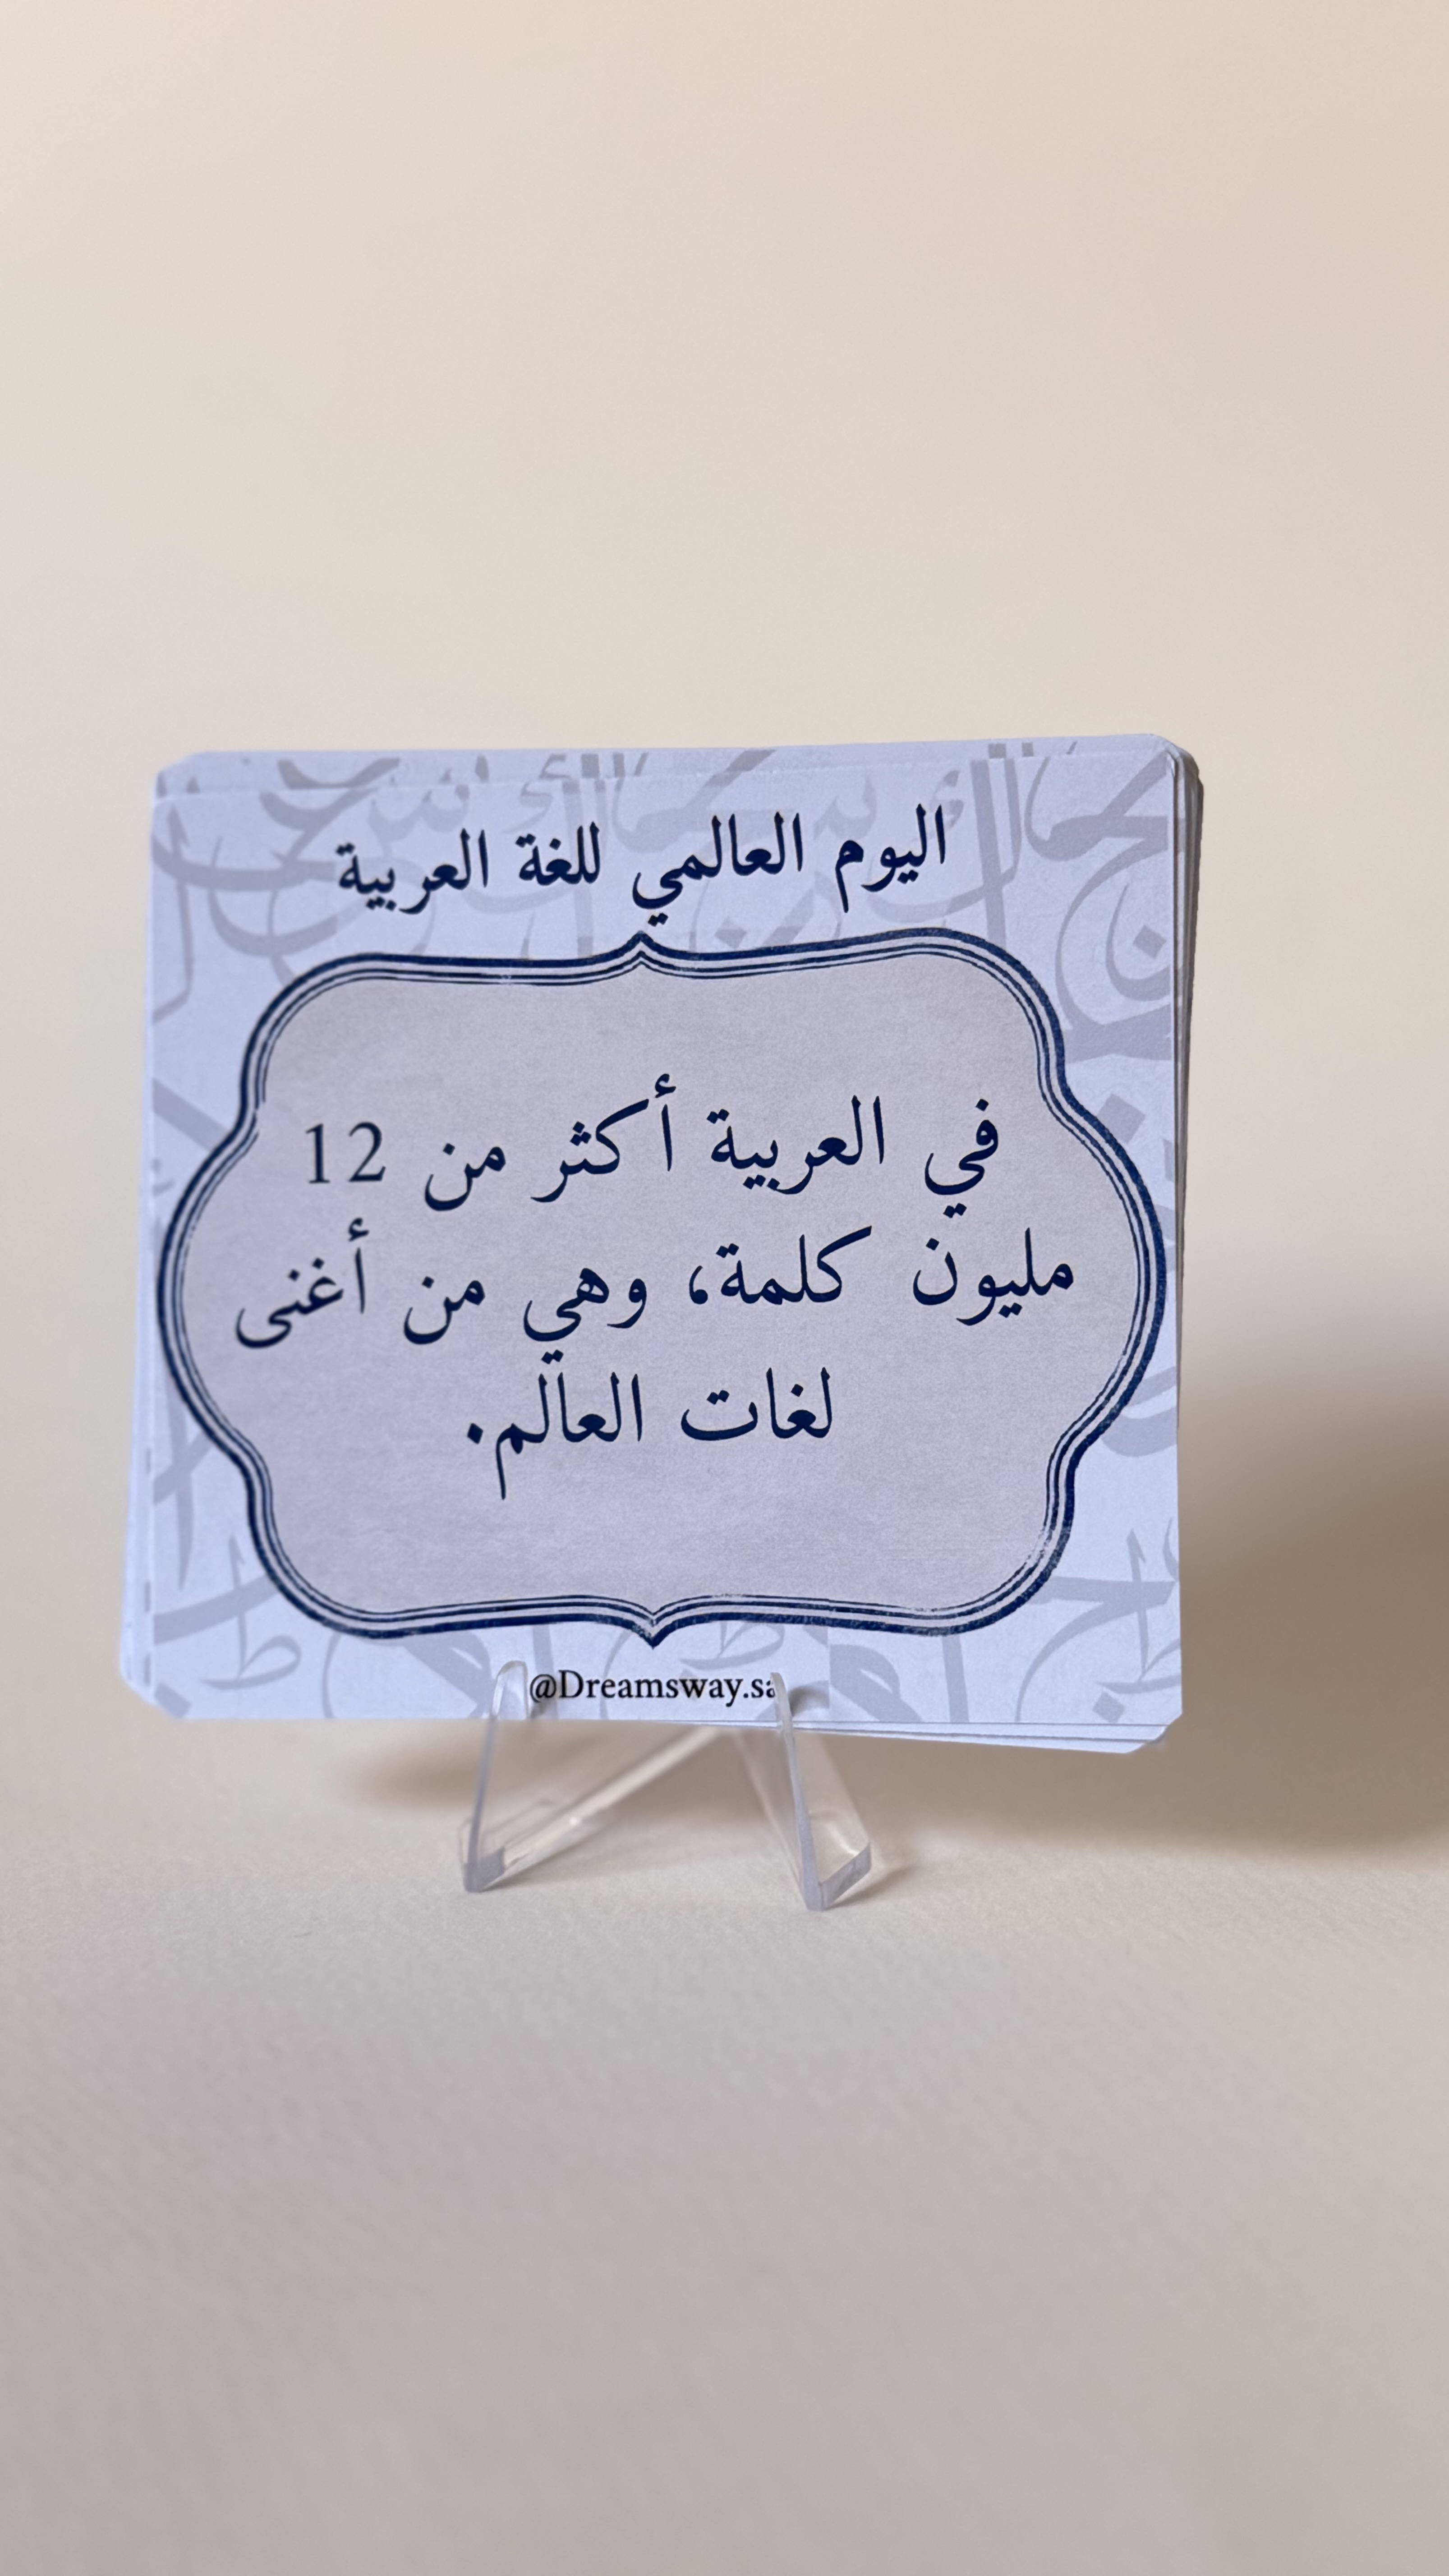 اليوم العالمي للغة العربية
في العربية أكثر من 12
مليون كلمة، وهي من أغنى
لغات العالم.
@Dreamsway.sa